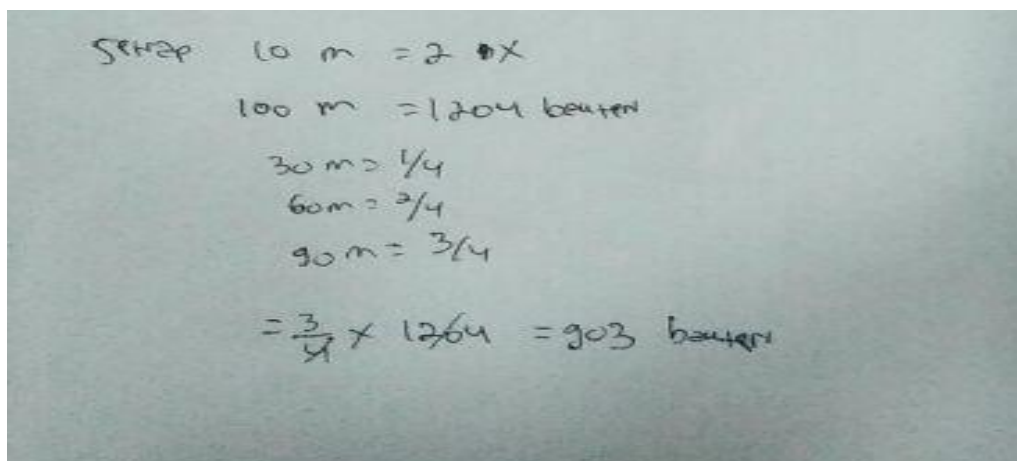 setiap 10 m = 2 x
100 m = 1204 bakteri
30 m = 1/4
60 m = 2/4
90 m = 3/4
= 3/4 x 1204 = 903 bakteri